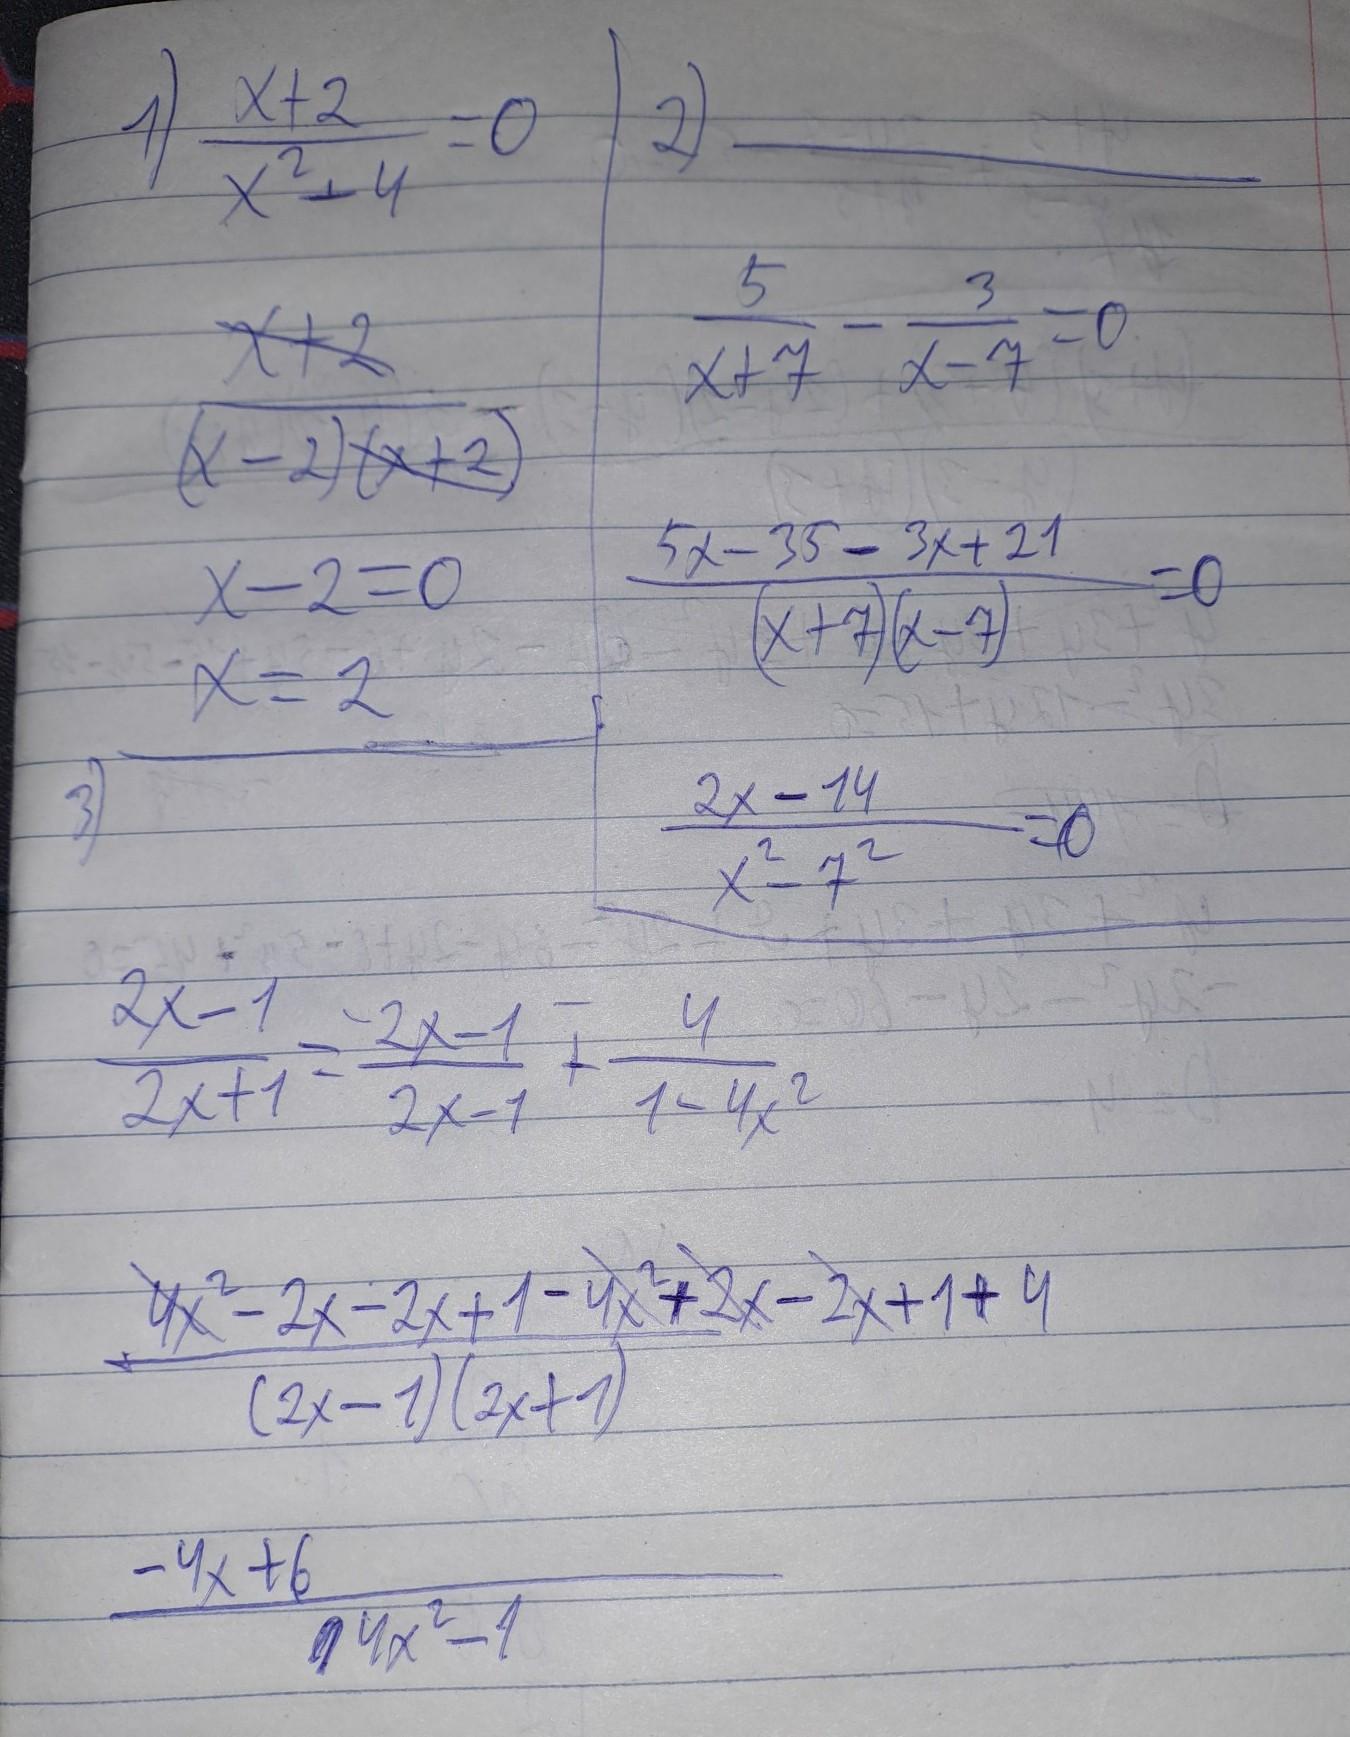 1) x+2/x²-4 =0
x+2
(x-2)(x+2)
x-2=0
x=2
2)
5/x+7 - 3/x-7 =0
5x-35-3x+21/(x+7)(x-7) =0
2x-14/x²-7² =0
3)
2x-1/2x+1 = 2x-1/2x-1 + 4/1-4x²
4x²-2x-2x+1-4x²+2x-2x+1+4
(2x-1)(2x+1)
-4x+6
4x²-1